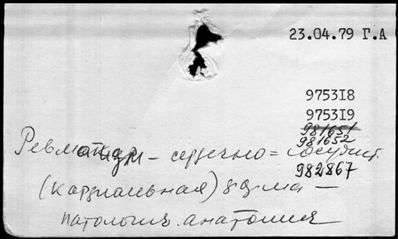 23.04.79 Г.А
975318
975319
981651
981652
Ревматизм – сердечно = сосудист.
982867
(кардиальная) форма –
патологич. анатомия